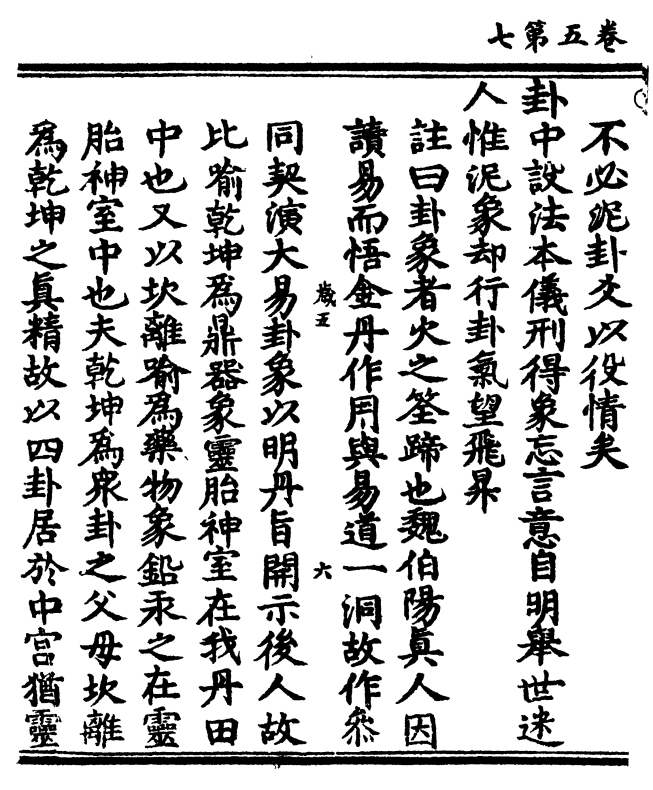 卷五第七
不必泥卦爻以役情矣
卦中設法本儀刑得象忘言意自明舉世迷
人惟泥象却行卦氣望飛昇
註曰卦象者火之筌蹄也魏伯陽眞人因
讀易而悟金丹作用與易道一洞故作叅
歲五　六
同契演大易卦象以明丹旨開示後人故
比喻乾坤爲鼎器象靈胎神室在我丹田
中也又以坎離喻爲藥物象鉛汞之在靈
胎神室中也夫乾坤爲衆卦之父母坎離
爲乾坤之眞精故以四卦居於中宮猶靈